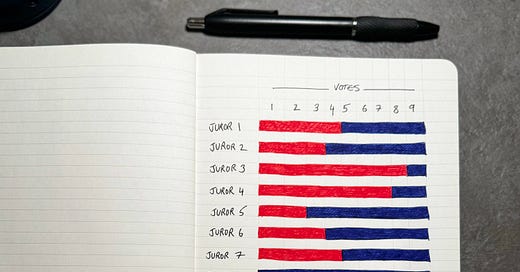 VOTES
1 2 3 4 5 6 7 8 9
JUROR 1
JUROR 2
JUROR 3
JUROR 4
JUROR 5
JUROR 6
JUROR 7